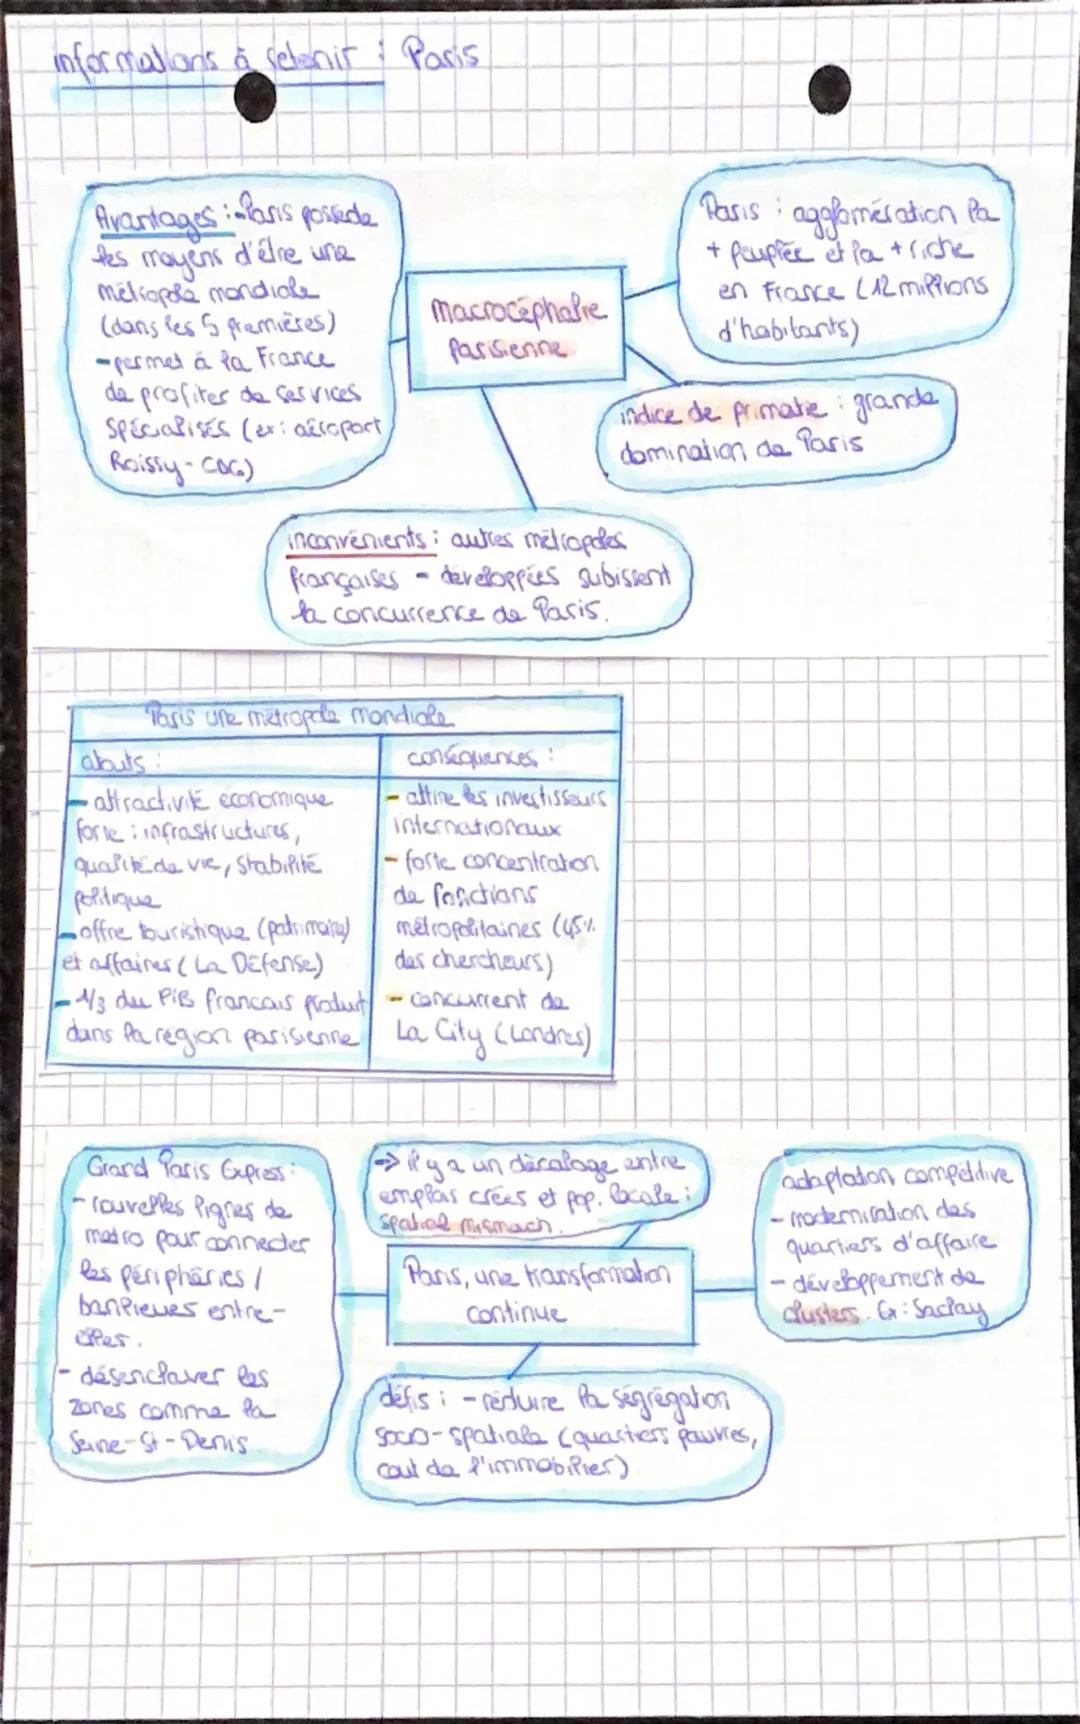 informations à retenir : Paris
Avantages : - Paris possède
les moyens d'être une
métropole mondiale
(dans les 5 premières)
- permet à la France
de profiter de services
spécialisés (ex: aéroport
Roissy-CDG)
macrocéphalie
parisienne
Paris : agglomération la
+ peuplée et la + riche
en France (12 millions
d'habitants)
indice de primatie : grande
domination de Paris
inconvénients : autres métropoles
françaises - développées subissent
la concurrence de Paris.
Paris une métropole mondiale
atouts :
- attractivité économique
forte : infrastructures,
qualité de vie, stabilité
politique
- offre touristique (patrimoine)
et affaires (La Défense)
- 1/3 du PIB francais produit
dans la région parisienne
conséquences :
- attire les investisseurs
internationaux
- forte concentration
de fonctions
métropolitaines (45%
des chercheurs)
- concurrent de
La City (Londres)
Grand Paris Express :
- nouvelles lignes de
metro pour connecter
les périphéries /
banlieues entre-
elles.
- désenclaver les
zones comme la
Seine-St-Denis
-> il y a un décalage entre
emplois crées et pop. locale :
spatial mismach.
Paris, une transformation
continue
adaptation compétitive
- modernisation des
quartiers d'affaire
- développement de
clusters. Ex : Saclay
défis : - réduire la ségrégation
socio-spatiale (quartiers pauvres,
cout de l'immobilier)